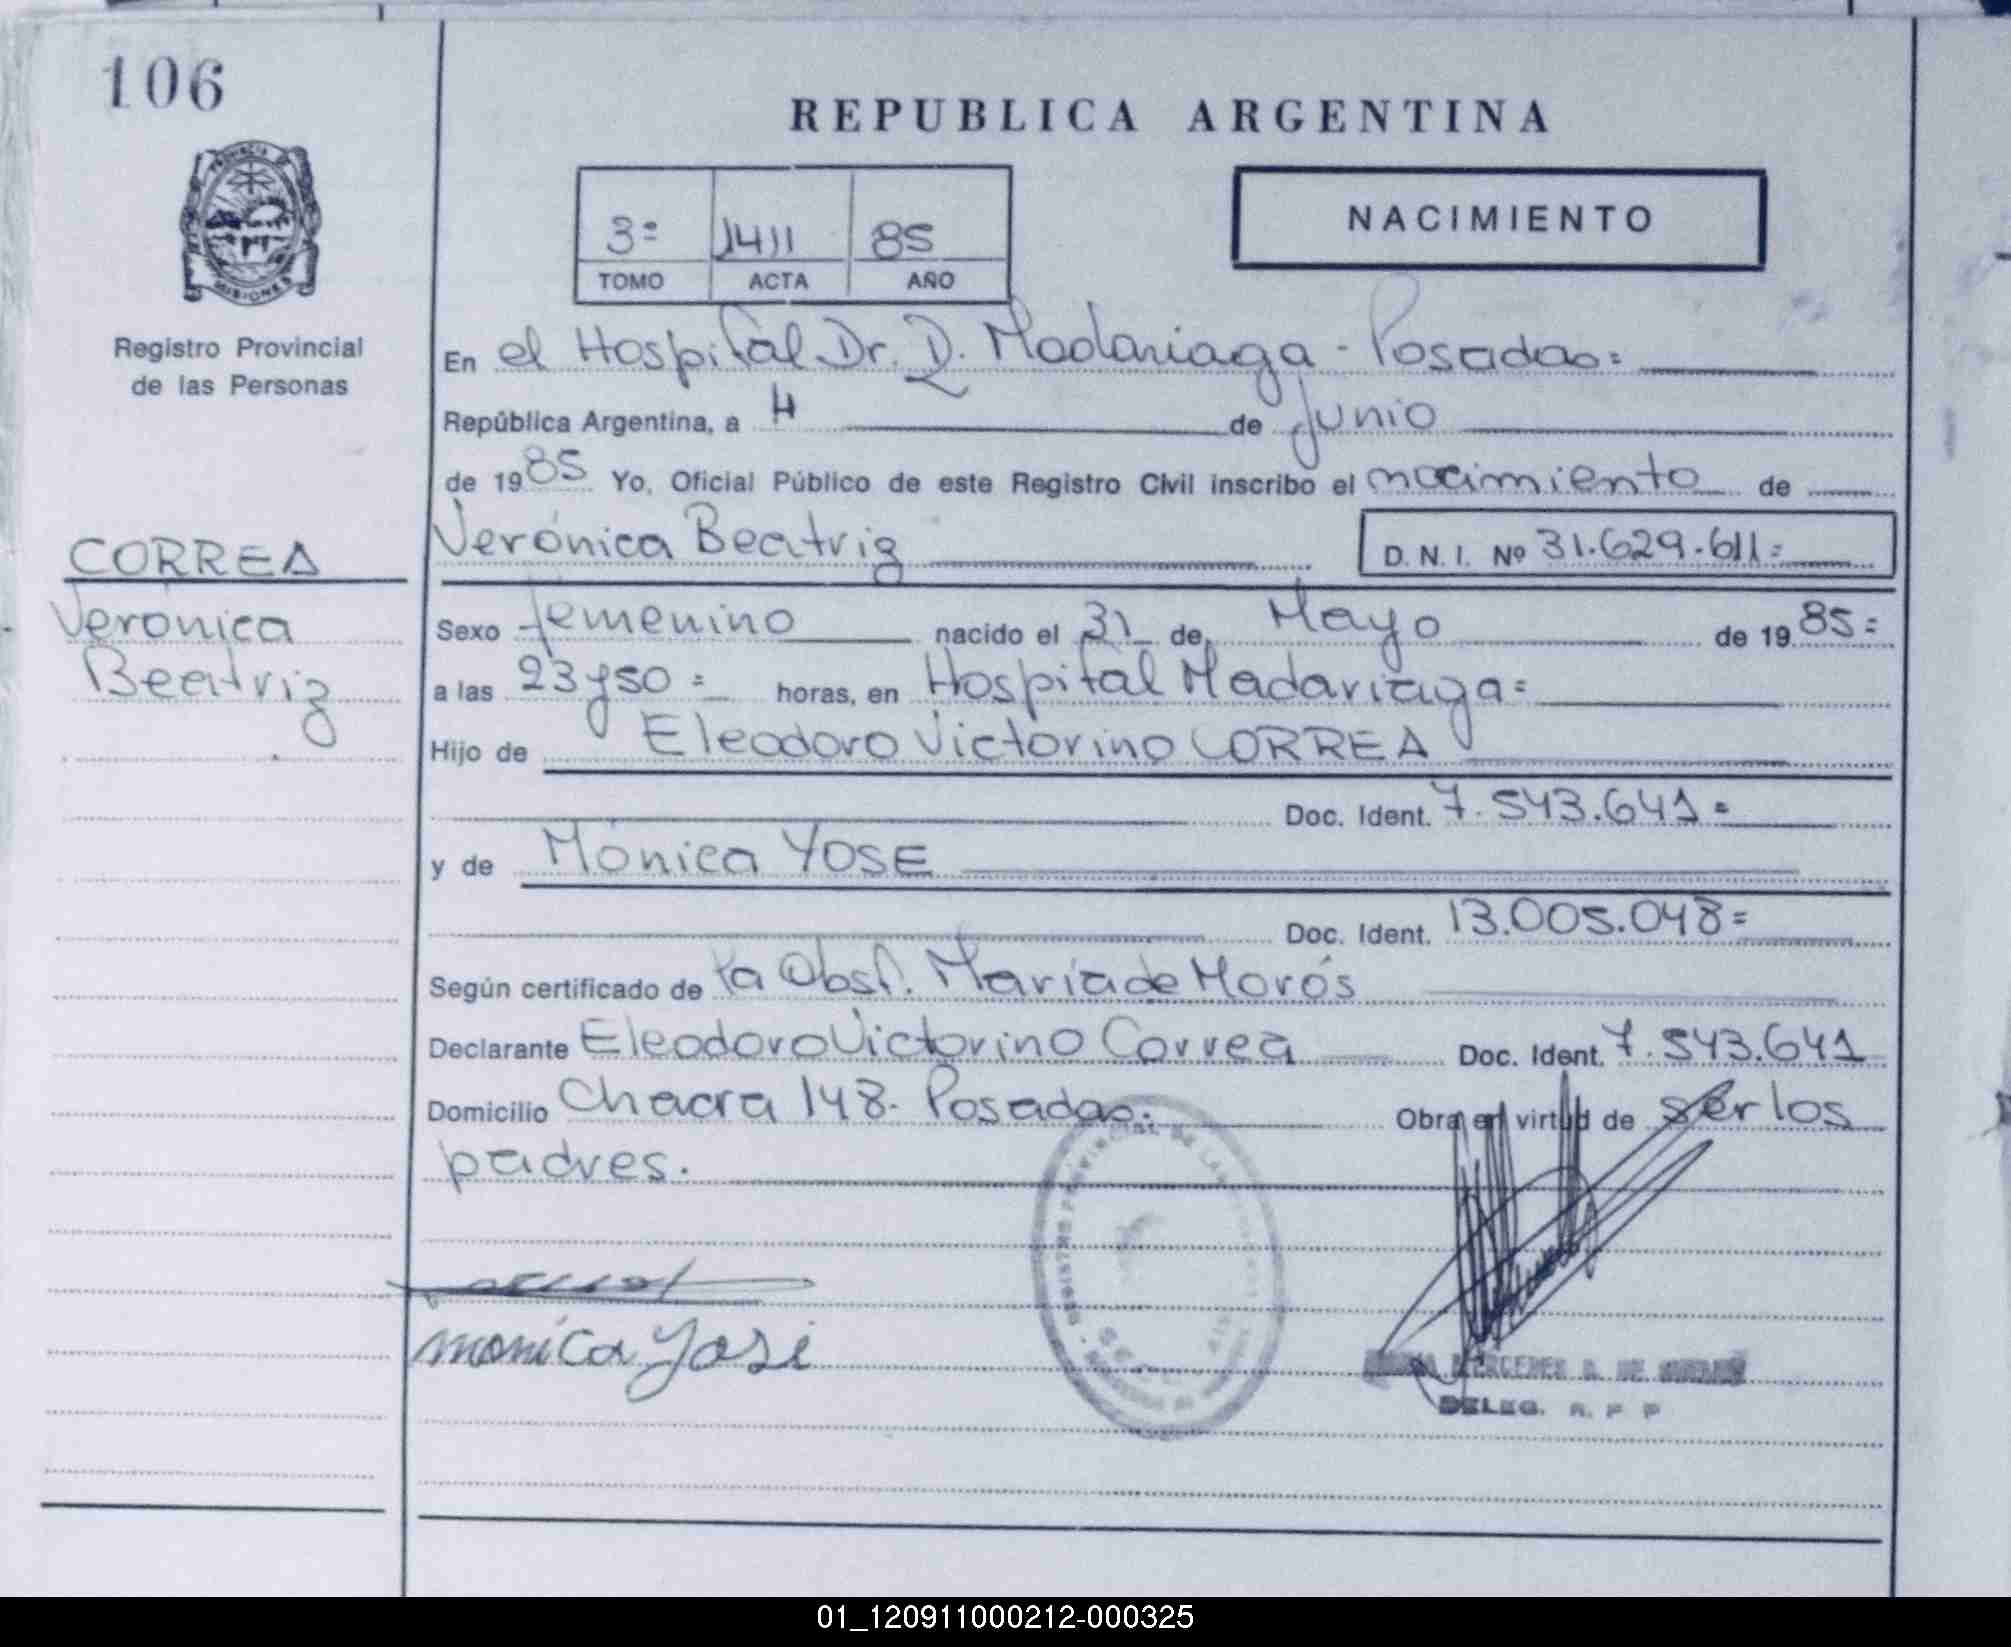 106
REPUBLICA ARGENTINA
PROVINCIA DE
MISIONES
Registro Provincial
de las Personas
3= 1411 85
TOMO ACTA AÑO
NACIMIENTO
En el Hospital Dr. D. Madariaga - Posadas=
República Argentina, a 4 de Junio
de 1985 Yo, Oficial Público de este Registro Civil inscribo el nacimiento de
Verónica Beatriz D. N. I. Nº 31.629.611=
CORREA
Verónica
Beatriz
Sexo femenino nacido el 31 de Mayo de 1985=
a las 23 y 50= horas, en Hospital Madariaga=
Hijo de Eleodoro Victorino CORREA
Doc. Ident. 7.543.641=
y de Mónica YOSE
Doc. Ident. 13.005.048=
Según certificado de la Obst. María de Morós
Declarante Eleodoro Victorino Correa Doc. Ident. 7.543.641
Domicilio Chacra 148. Posadas. Obra en virtud de ser los
padres.
REGISTRO PROVINCIAL DE LAS
monica yose
MERCEDES DE
DELEG. R. P. P
01_120911000212-000325